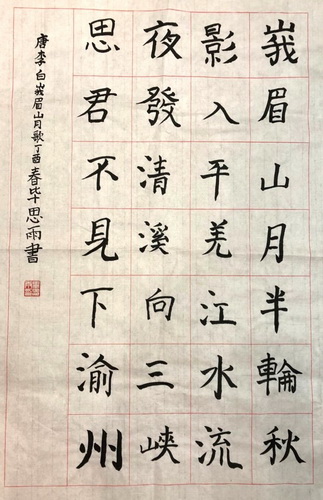 峩眉山月半輪秋
影入平羌江水流
夜發清溪向三峽
思君不見下渝州
唐李白峩眉山月歌丁酉春毕十思雨書